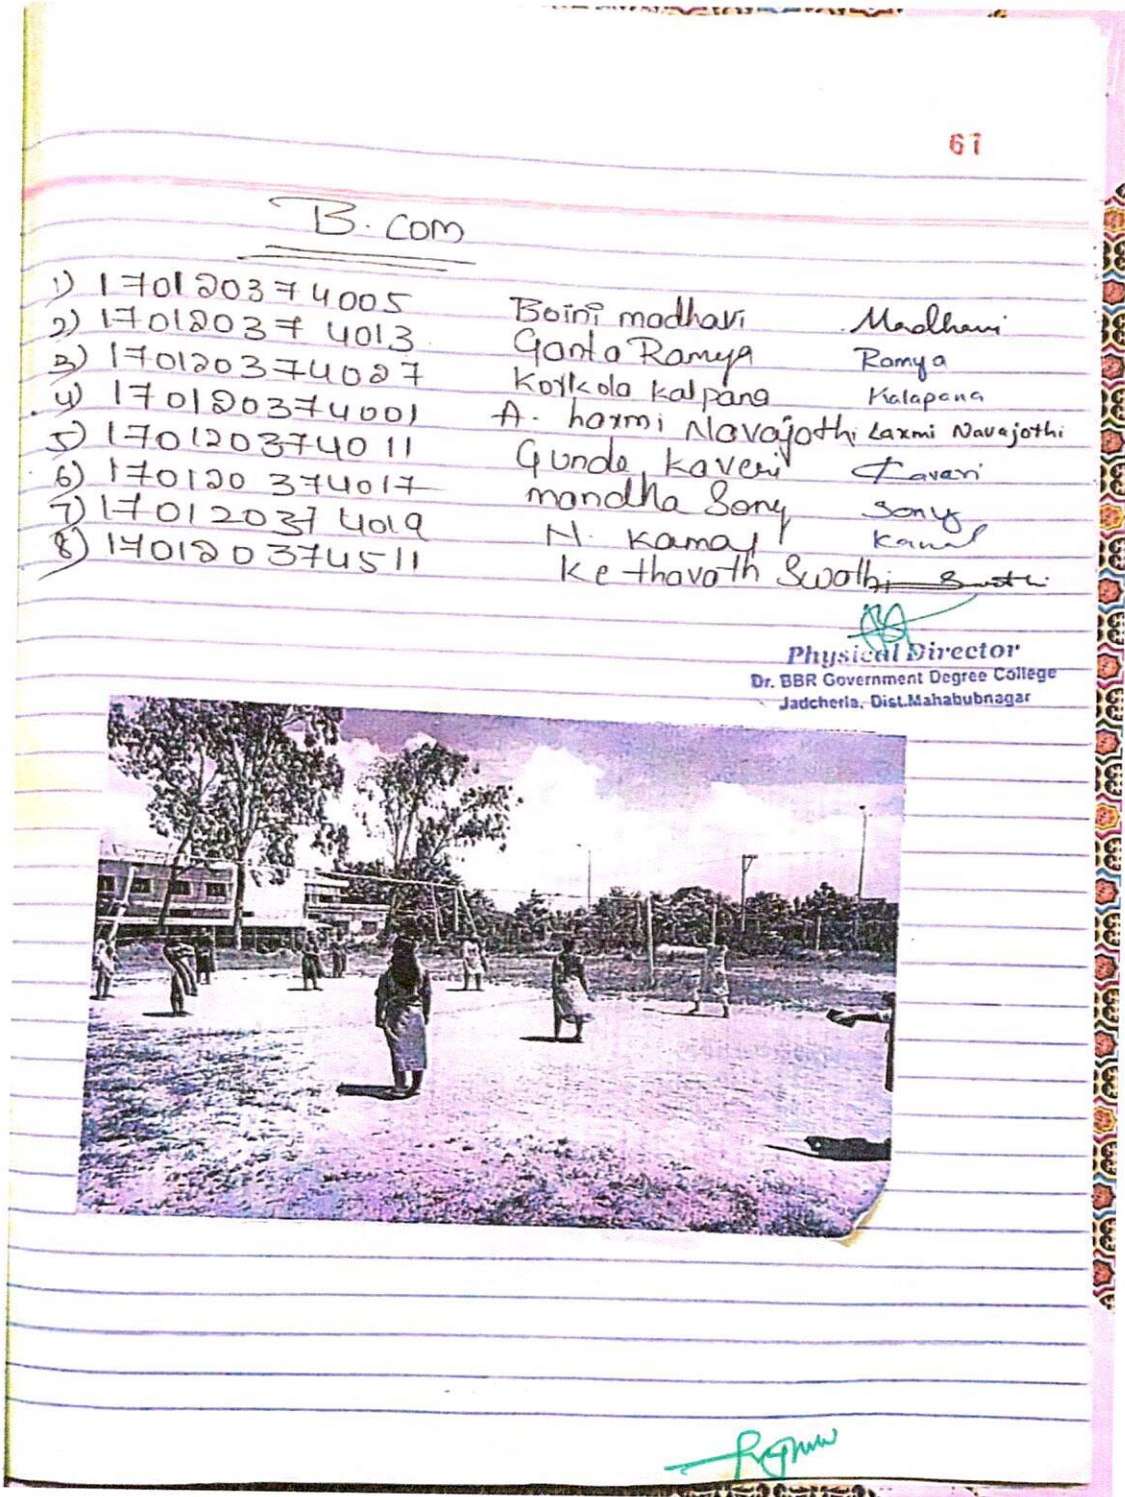 61
B. com
1) 170120374005 Boini madhavi Madhavi
2) 170120374013 Ganta Ramya Ramya
3) 170120374027 Korkola kalpana Kalapana
4) 170120374001 A. haxmi Navajothi Laxmi Navajothi
5) 170120374011 Gunde kaveri Kaveri
6) 170120374017 mandha Sony Sony
7) 170120374019 N. kamal Kamal
8) 170120374511 Kethavath Swathi Swathi
Physical Director
Dr. BBR Government Degree College
Jadcherla, Dist.Mahabubnagar